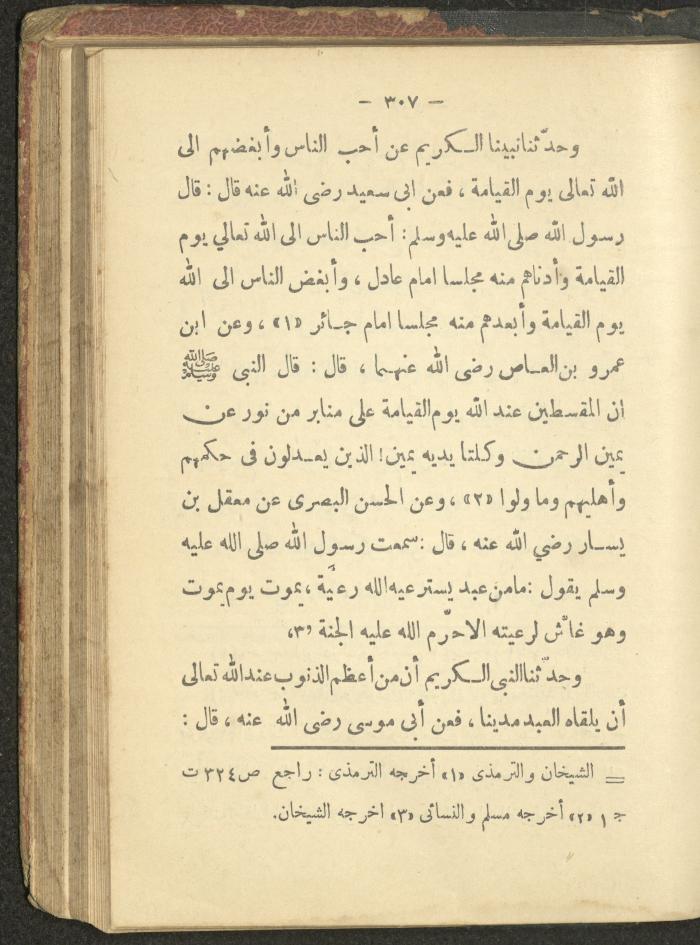 — ٣٠٧ —
وحدّثنا نبينا الـكريم عن أحب الناس وأبغضهم الى
الله تعالى يوم القيامة ، فعن ابى سعيد رضى الله عنه قال : قال
رسول الله صلى الله عليه وسلم : أحب الناس الى الله تعالي يوم
القيامة وأدناهم منه مجلسا امام عادل ، وأبغض الناس الى الله
يوم القيامة وأبعدهم منه مجلسا امام جـائر «١» ، وعن ابن
عمرو بن العـاص رضى الله عنهـما ، قال : قال النبى ﷺ
ان المقسطين عند الله يوم القيامة على منابر من نور عن
يمين الرحمن وكـلتا يديه يمين ! الذين يعـدلون فى حكمهم
وأهليهم وما ولوا «٢» ، وعن الحسن البصرى عن معقل بن
يسـار رضي الله عنه ، قال : سمعت رسول الله صلى الله عليه
وسلم يقول : مامن عبد يسترعيه الله رعيَّة ، يموت يوم يموت
وهو غاشّ لرعيته الاحرّم الله عليه الجنة «٣»
وحدّثنا النبى الـكريم أن من أعظم الذنوب عند الله تعالى
أن يلقاه العبد مدينا ، فعن أبى موسى رضى الله عنه ، قال :
= الشيخان والترمذى «١» أخرجه الترمذى : راجع ص ٣٢٤ ت
جـ ١ «٢» أخرجه مسلم والنسائى «٣» اخرجه الشيخان.